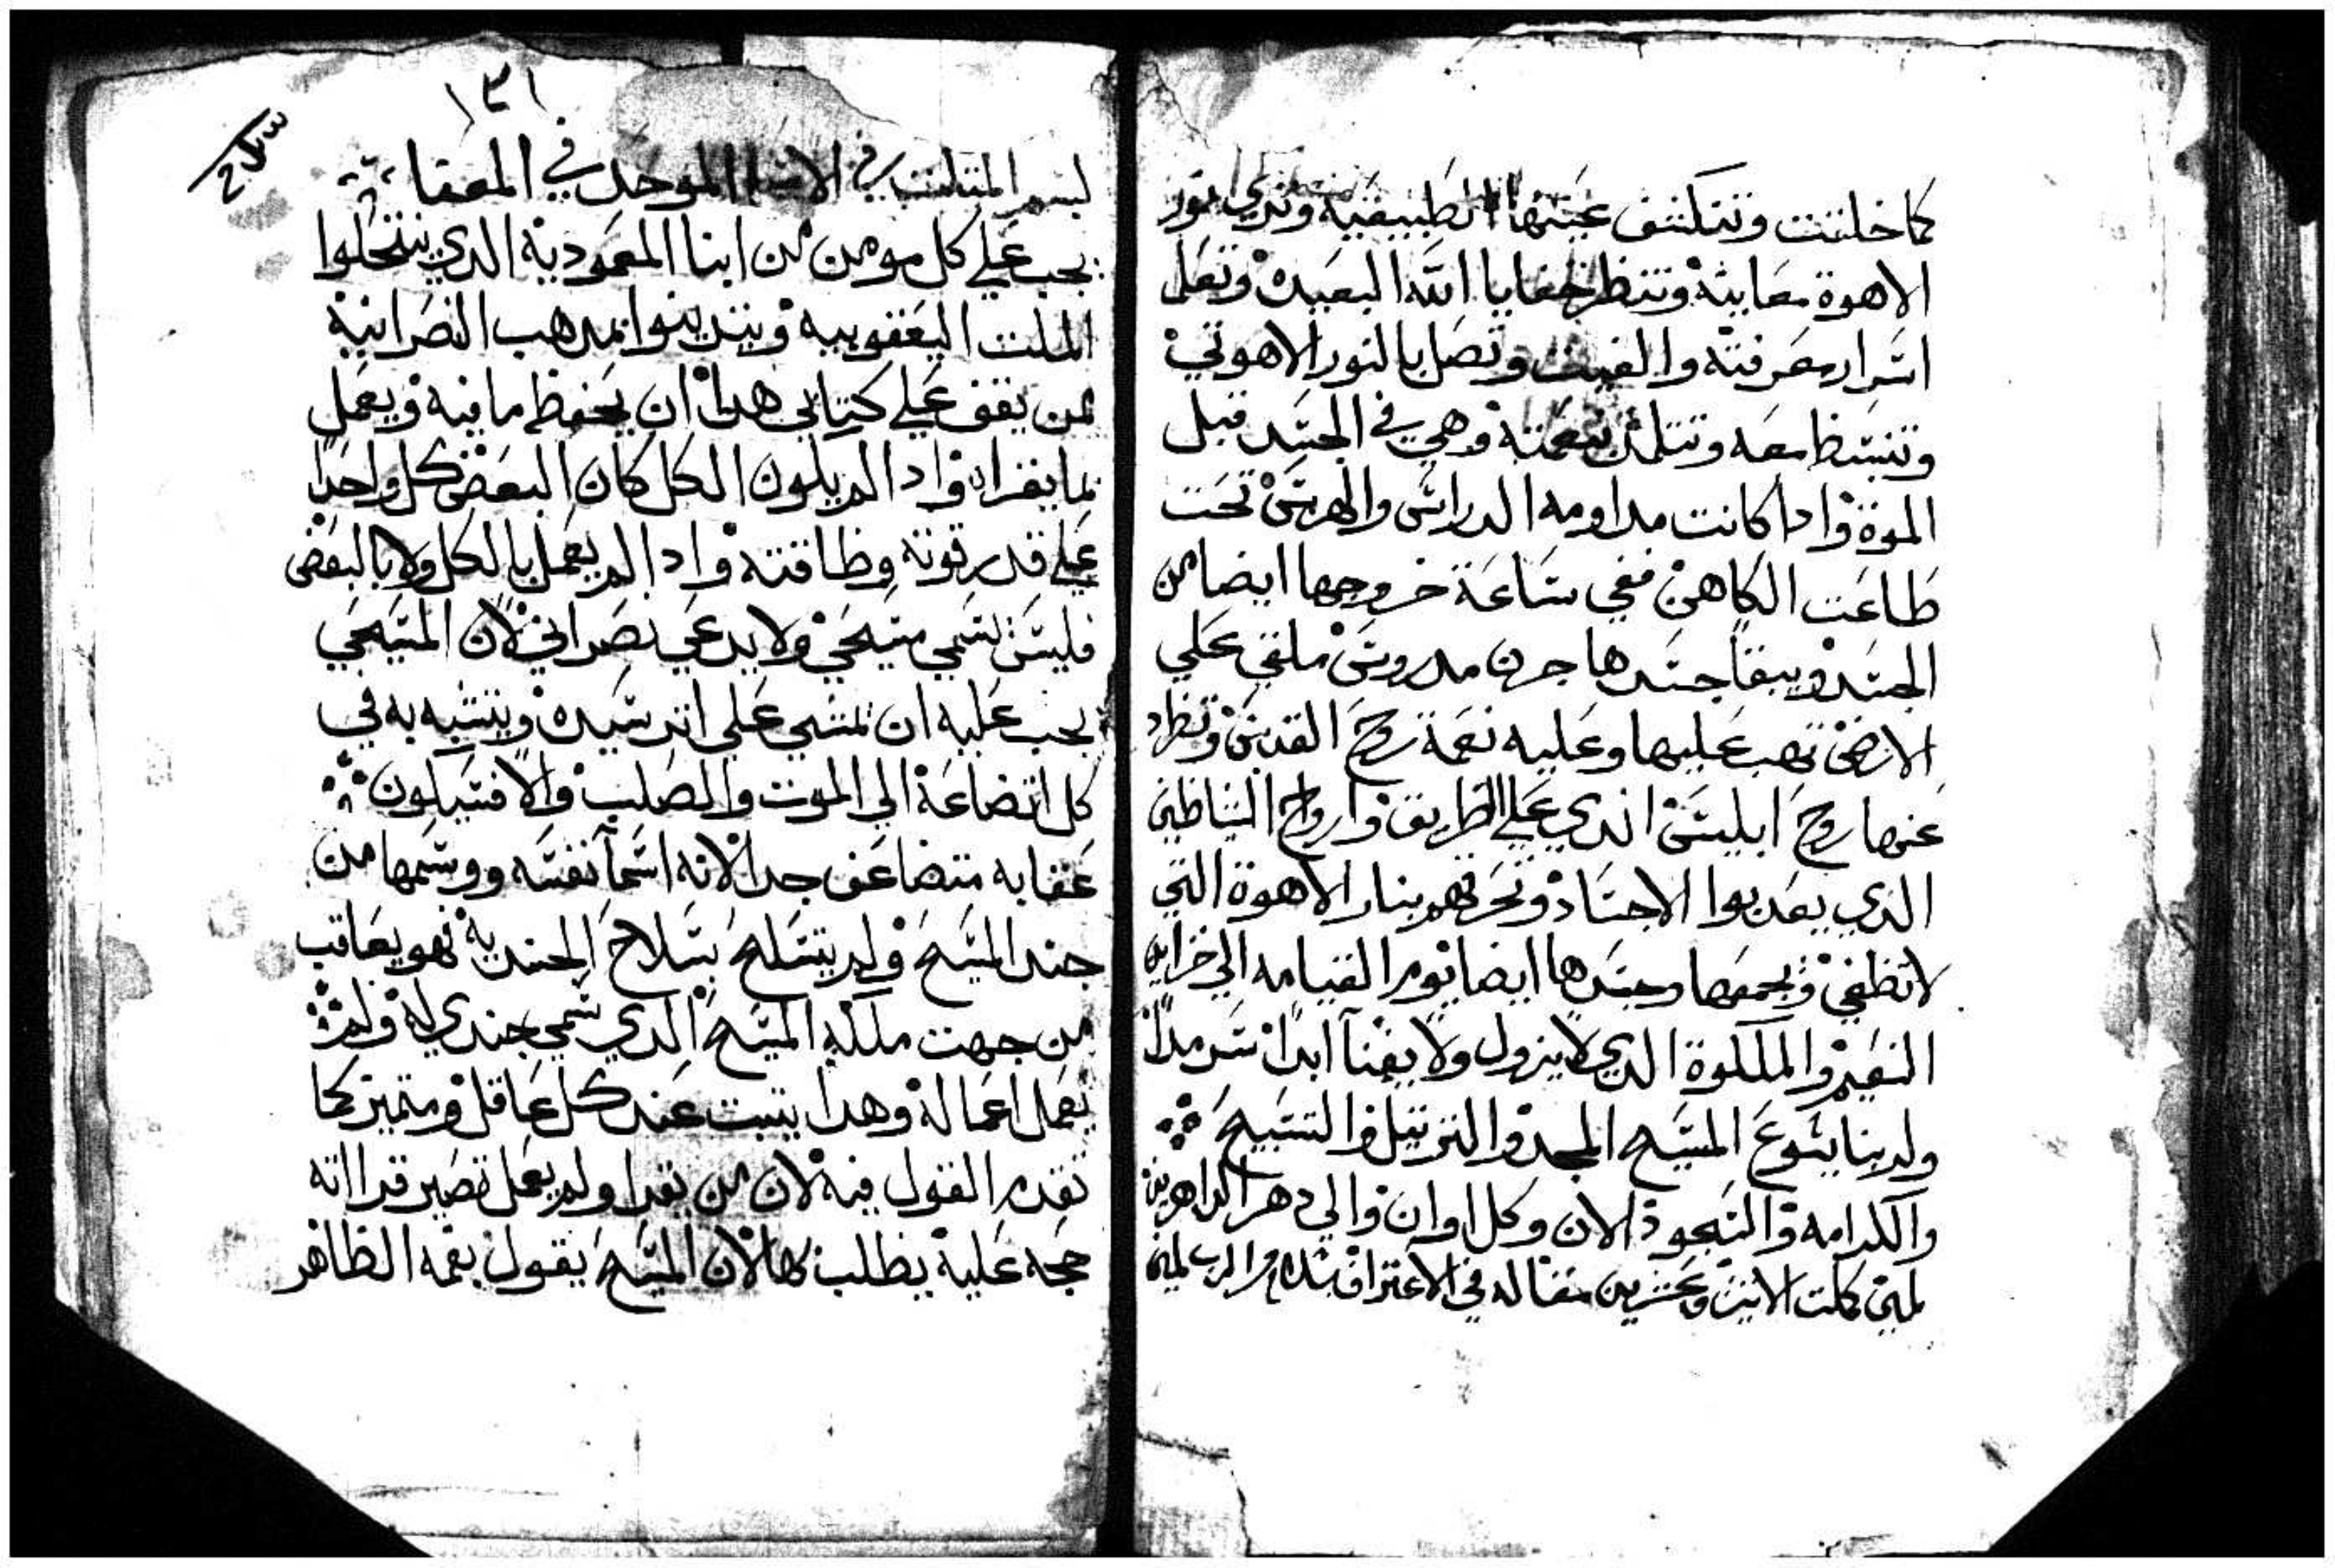 كما خلقت وتتكشف عينها الطبيعية وتري نور
الاهوة معاينة وتنظر خفايا الله البعيده وتعلم
اسرار معرفته والغيب وتصل بالنور الاهوتي
وتنبسط معه وتتلدد بنعمته وهي في الجسد قبل
الموة وادا كانت مداومه الدراس والهرس تحت
طاعت الكاهن ففي ساعة خروجها ايضا من
الجسد ويبقا جسدها جرن مدروس ملقي علي
الارض تهب عليها وعليه نعمة روح القدس وتطرد
عنها روح ابليس الدي علي الطريق وارواح الشياطين
الدي يعدبوا الاجساد وتحرقهم بنار الاهوة التي
لا تطفي ويجمعها وجسدها ايضا يوم القيامه الي خزاين
النعيم والملكوة الدي لا يزول ولا يفنآ ابدا سرمدا
ولربنا يسوع المسيح المجد والترتيل والتسبيح
والكرامه والسجود الان وكل اوان والي دهر الداهرين
امين كملت الاتنين وعشرين مقاله في الاعتراف بسلام من الرب امين
١٣١
بسم المتلت في الاسما الموحد في المعقا
يجب علي كل مومن من ابنا المعموديه الدي ينتحلوا
الملت اليعقوبيه ويتدينوا بمدهب النصرانيه
لمن يقف علي كتابي هدا ان يحفظ ما فيه ويعمل
بما يقراه وادا لم يكون الكل كان البعض كل واحدا
علي قدر قوته وطاقته وادا لم يعمل بالكل ولا بالبعض
فليس يسمي مسيحي ولا يدعي نصراني لان المسيحي
يجب عليه ان يمشي علي اتر سيده ويتشبه به في
كل اتضاعة الي الموت والصلب والا فتيكون
عقابه متضاعف جدا لانه اسمآ نفسه ووسمها من
جند المسيح ولم يتسلح بسلاح الجنديه فهو يعاقب
من جهت ملكه المسيح الدي سمي جندي له ولم
يعمل اعماله وهدا يتبت عند كل عاقل ومتميز كما
تقدم القول فيه لان من يقرا ولم يعمل تصير قرااته
حجه عليه يطلب بها لان المسيح يقول بفمه الطاهر